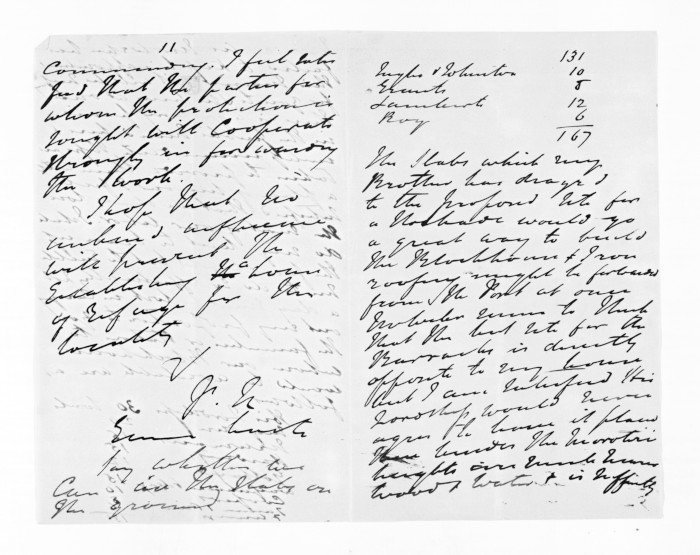 11
Commanding. I feel satis
fied that the parties for
whom the protection is
sought will Cooperate
strongly in forwarding
the Work.
I hope that no
influence
will prevent the
Establishing a house
of Refuge for this
locality
say whether we
can use the slabs on
the ground
131
Inglis & Johnston 10
Grants 8
Lamberts 12
Roy 6
167
The Slabs which my
Brother has dragg'd
to the proposed site for
a Stockade would go
a great way to build
the Blockhouse & Iron
roofing might be forwarded
from the Port at once
seems to think
that the best site for the
Barracks is directly
opposite to my house
but I am satisfied His
Lordship would never
agree to have it placed
besides the
heights are much nearer
wood & water & is